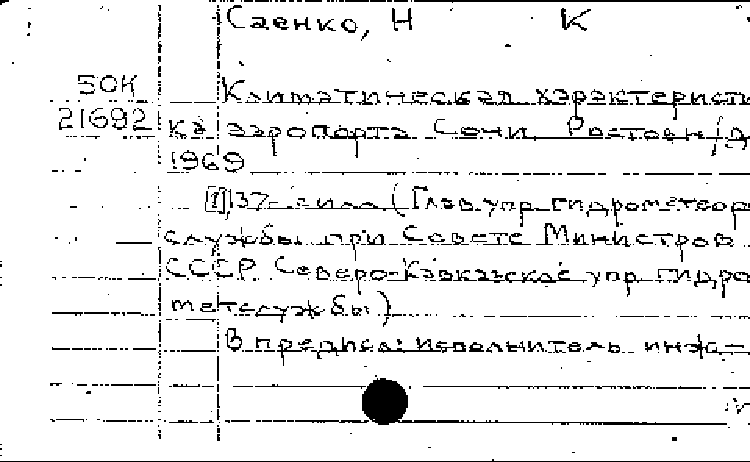 Саенко, Н К
50К Климатическая характеристи
21692 ка аэропорта Сочи, Ростовн/Д
1969
[1], 137 с илл (Глав.упр гидрометеор
службы при Совете Министров
СССР. Северо-Кавказское упр гидро
метслужбы)
В предисл: исполнитель инже-